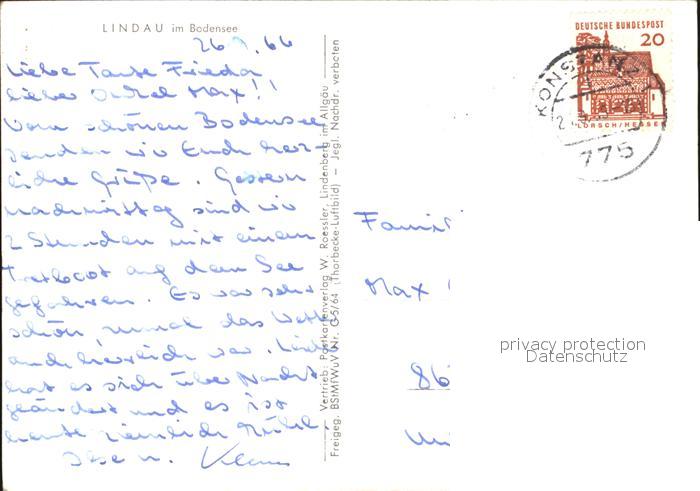 LINDAU im Bodensee
26.9.66
Liebe Tante Frieda
lieber Onkel Max!!
Vom schönen Bodensee
senden wir Euch herz-
liche Grüße. Gestern
nachmittag sind wir
2 Stunden mit einem
Tretboot auf dem See
gefahren. Es war sehr
schön zumal das Wetter
auch herrlich war. Leider
hat es sich über Nacht
geändert und es ist
heute ziemlich kühl.
Ilse u. Klaus
Vertrieb: Postkartenverlag W. Roessler, Lindenberg im Allgäu
Freigeg. BStMfWuV Nr. G-5/64 (Thorbecke-Luftbild) — Jegl. Nachdr. verboten
DEUTSCHE BUNDESPOST
20
LORSCH/HESSEN
KONSTANZ
775
Famil
Max
86
privacy protection
Datenschutz